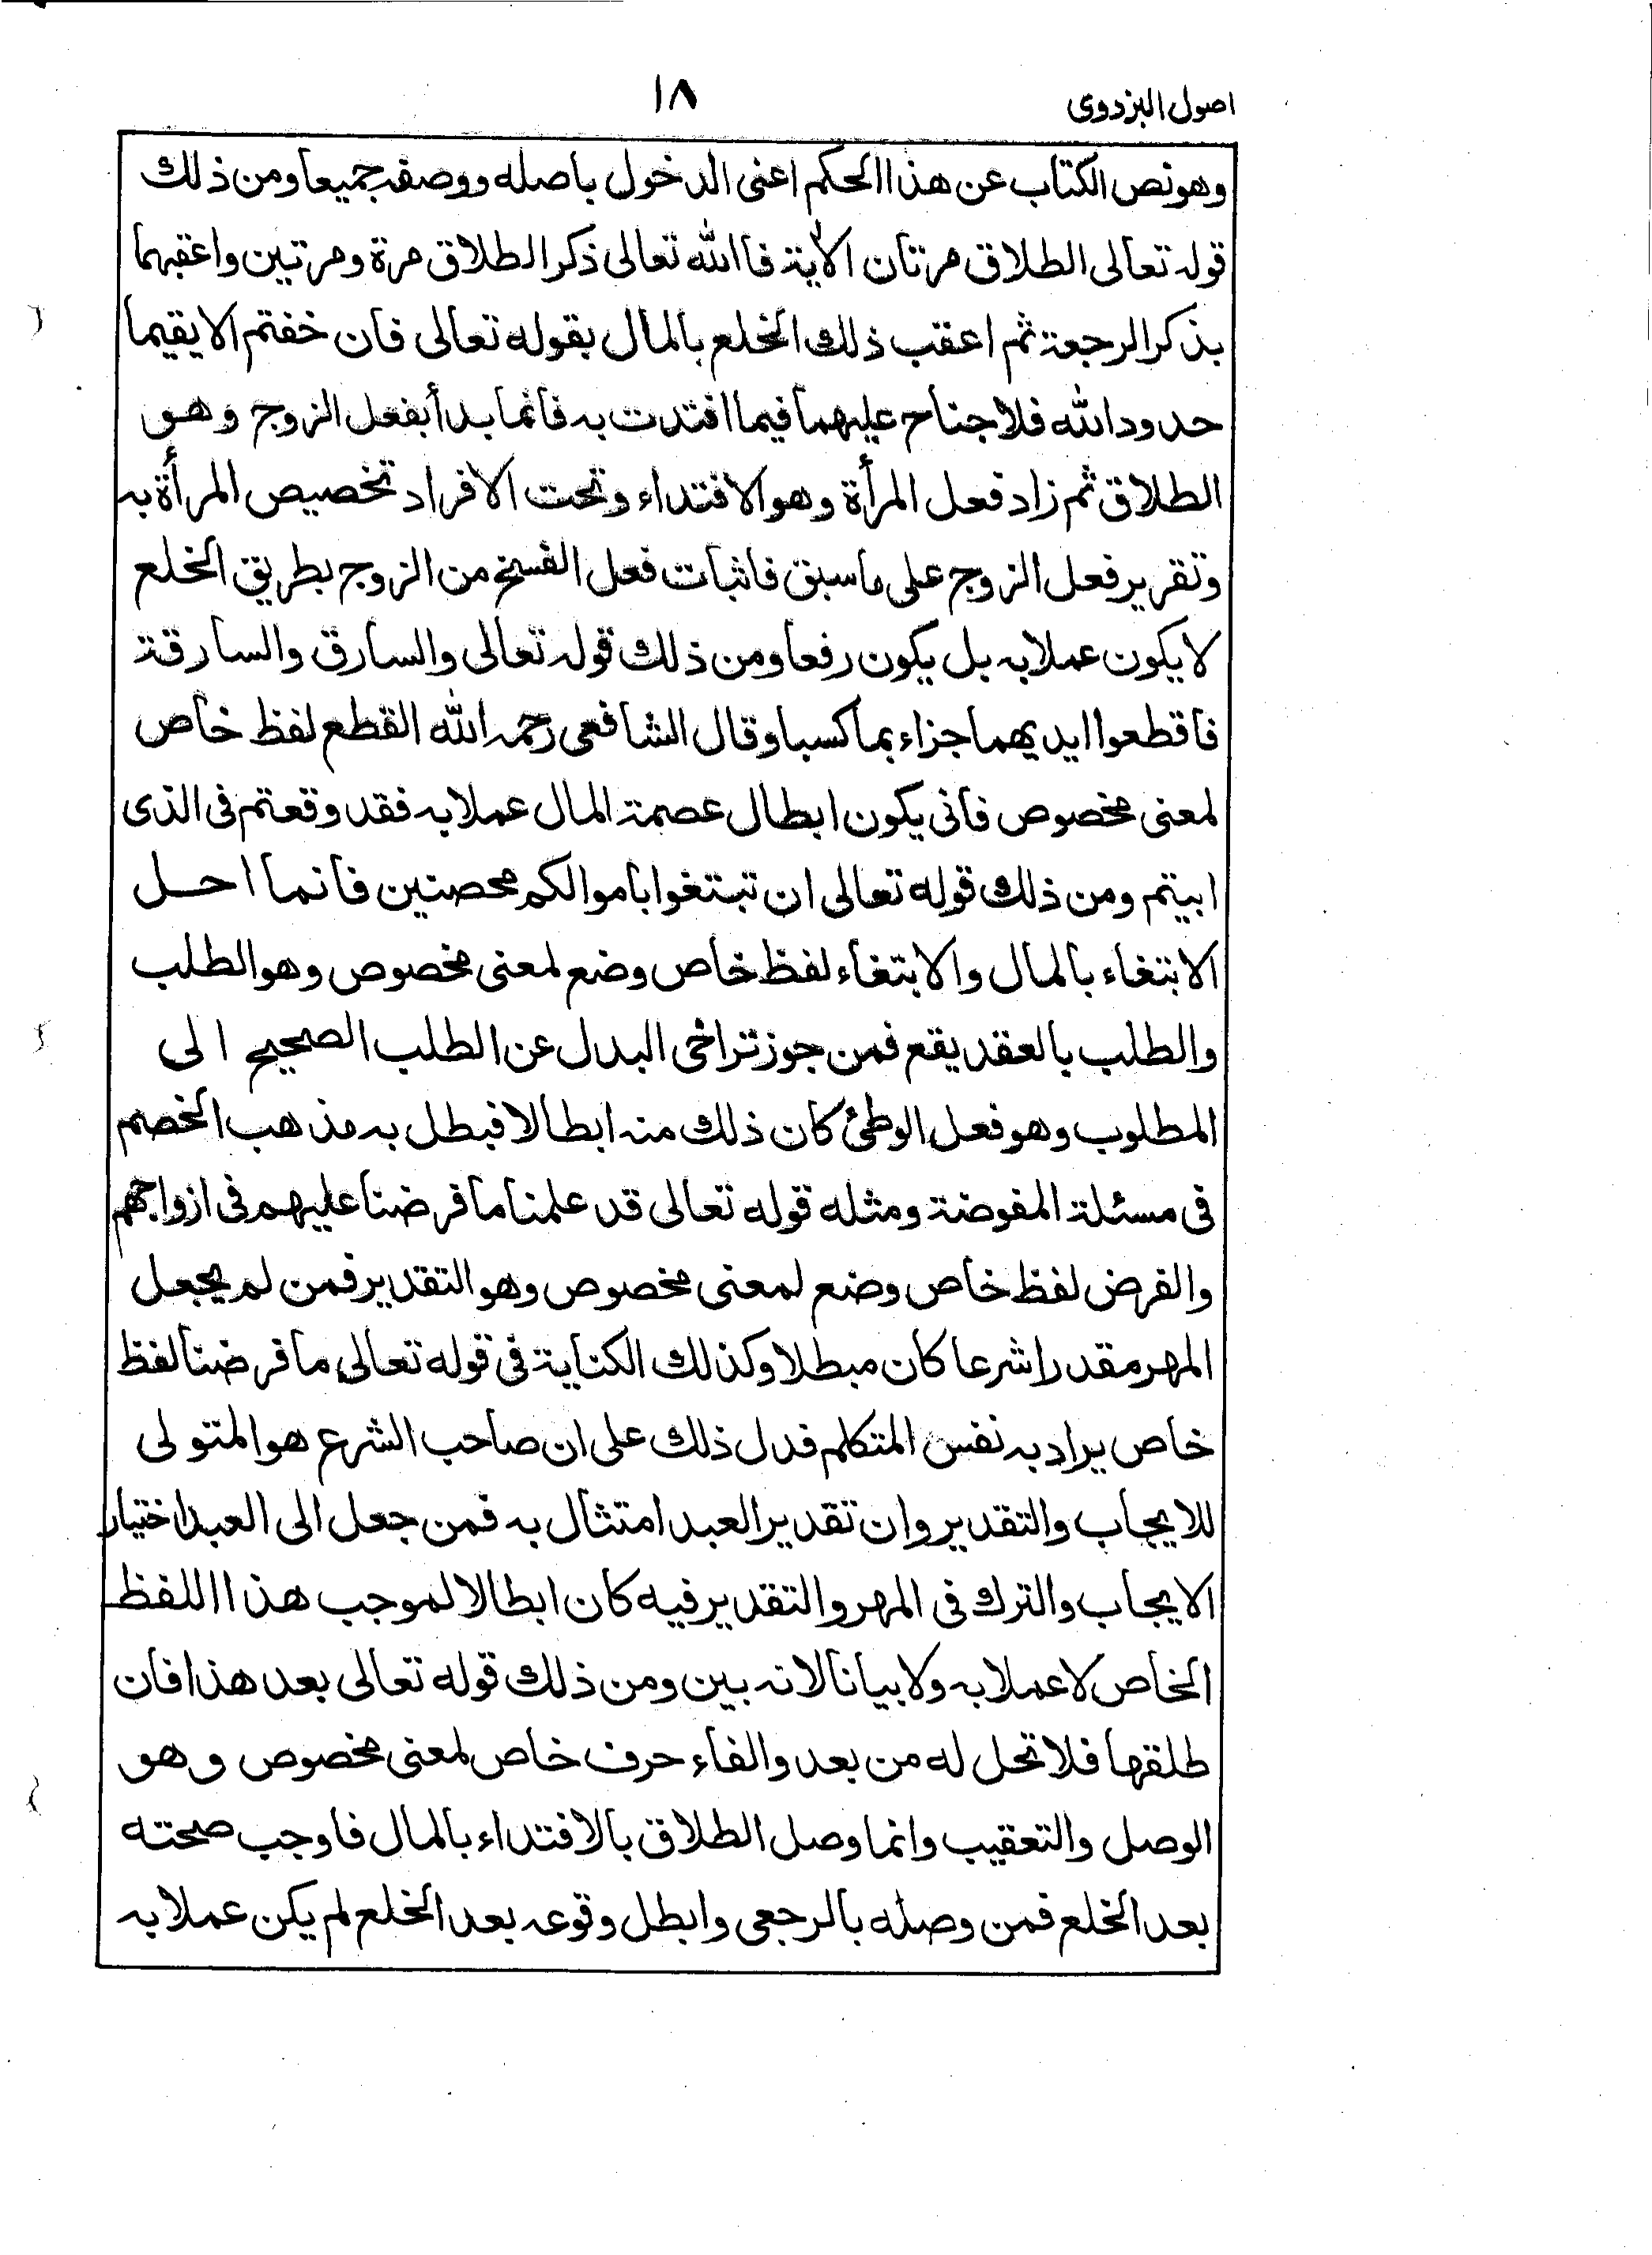 اصول البزدوى
١٨
وهو نص الكتاب عن هذا الحكم اعنى الدخول باصله ووصفه جميعا ومن ذلك
قوله تعالى الطلاق مرتان الأية فاالله تعالى ذكر الطلاق مرة ومرتين واعقبهما
بذكر الرجعة ثم اعقب ذلك الخلع بالمال بقوله تعالى فان خفتم الا يقيما
حدود الله فلا جناح عليهما فيما افتدت به فانما بدأ بفعل الزوج وهو
الطلاق ثم زاد فعل المرأة وهو الافتداء وتحت الافراد تخصيص المرأة به
وتقرير فعل الزوج على ما سبق فاثبات فعل الفسخ من الزوج بطريق الخلع
لا يكون عملا به بل يكون رفعا ومن ذلك قوله تعالى والسارق والسارقة
فاقطعوا ايديهما جزاء بما كسبا وقال الشافعى رحمه الله القطع لفظ خاص
لمعنى مخصوص فانى يكون ابطال عصمة المال عملا به فقد وقعتم فى الذى
ابيتم ومن ذلك قوله تعالى ان تبتغوا باموالكم محصنين فانما احل
الابتغاء بالمال والابتغاء لفظ خاص وضع لمعنى مخصوص وهو الطلب
والطلب بالعقد يقع فمن جوز تراخى البدل عن الطلب الصحيح الى
المطلوب وهو فعل الوطئ كان ذلك منه ابطالا فبطل به مذهب الخصم
فى مسئلة المفوضة ومثله قوله تعالى قد علمنا ما فرضنا عليهم فى ازواجهم
والفرض لفظ خاص وضع لمعنى مخصوص وهو التقدير فمن لم يجعل
المهر مقدرا شرعا كان مبطلا وكذلك الكناية فى قوله تعالى ما فرضنا لفظ
خاص يراد به نفس المتكلم فدل ذلك على ان صاحب الشرع هو المتولى
للايجاب والتقدير وان تقدير العبد امتثال به فمن جعل الى العبد اختيار
الايجاب والترك فى المهر والتقدير فيه كان ابطالا لموجب هذا اللفظ
الخاص لا عملا به ولا بيانا لانه بين ومن ذلك قوله تعالى بعد هذا فان
طلقها فلا تحل له من بعد والفاء حرف خاص لمعنى مخصوص وهو
الوصل والتعقيب وانما وصل الطلاق بالافتداء بالمال فاوجب صحته
بعد الخلع فمن وصله بالرجعى وابطل وقوعه بعد الخلع لم يكن عملا به